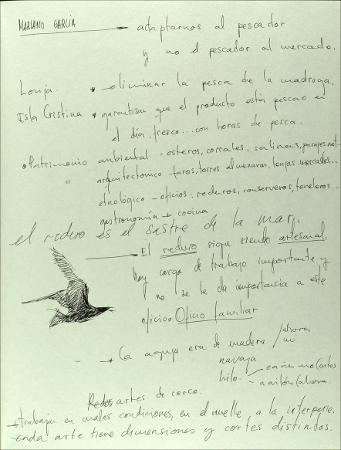 MARIANO GARCÍA → adaptarnos al pescador
y no el pescador al mercado.
Lonja. • eliminar la pesca de la madruga.
Isla Cristina • garantizar que el producto está pescao en
el día, cerco... con horas de pesca.
• Patrimonio ambiental - esteros, corrales, salinas, parajes nat.
" arquitectónico - faros, torres almenaras, lonjas, mercados...
etnológico - oficios, rederos, conserveros, toneleros...
gastronomía → cocina
el redero es el sastre de la mar.
- El redero sigue siendo artesanal,
hay cargo de trabajo importante y
no se le da importancia a este
oficio. Oficio familiar
- La aguja era de madera / ahora
navaja
hilo
a nilon (ahora.
Redes artes de cerco.
→ trabajan en malas condiciones, en el muelle, a la intemperie.
- cada arte tiene dimensiones y cortes distintos.